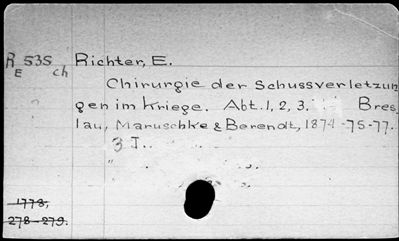 R 535 Richter, E.
E ch
Chirurgie der Schussverletzun
gen im Kriege. Abt. 1, 2, 3. Bres
lau, Maruschke & Berendt, 1874-75-77.
3 T..
1778,
278-279.